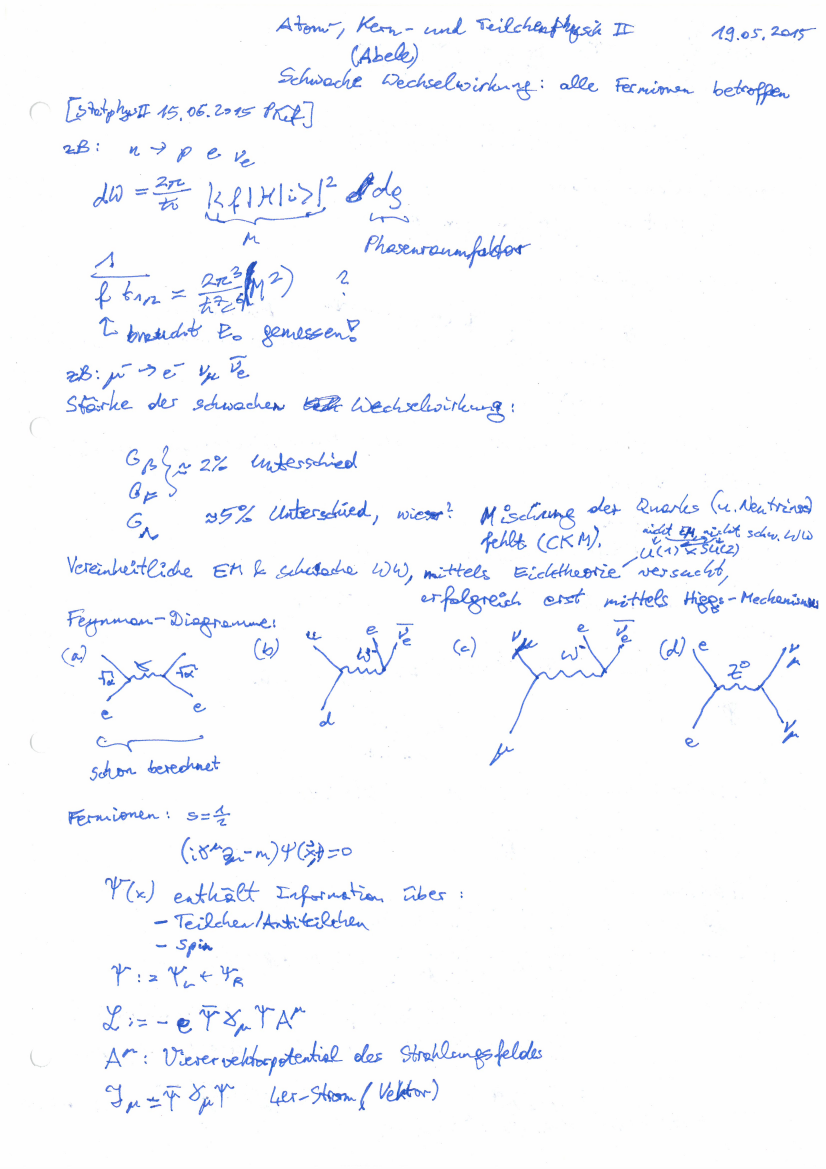 Atom-, Kern- und Teilchenphysik II 19.05.2015
(Abele)
Schwache Wechselwirkung: alle Fermionen betroffen
[StatphysII 15.06.2015 Prüf]
zB: n → p e ν_e
dW = 2π/ħ |<f|H|i>|² dρ
M
Phasenraumfaktor
1
f t_1/2 = 2π³/ħ⁷c⁴ (M²) ?
↑ braucht E₀ gemessen!
zB: μ⁻ → e⁻ ν_μ ν̄_e
Stärke der schwachen Wechselwirkung:
G_β } ≈ 2% Unterschied
G_F
G_Λ ≈5% Unterschied, wieso? Mischung der Quarks (u. Neutrinos)
fehlt (CKM).
nicht EM, nicht schw. WW
U(1) × SU(2)
Vereinheitliche EM & schwache WW, mittels Eichtheorie versucht,
erfolgreich erst mittels Higgs-Mechanismus
Feynman-Diagramme:
(a) √α √α e e
(b) u e ν̄_e W⁻ d
(c) ν_μ e ν̄_e W⁻ μ
(d) e Z⁰ ν_μ e ν_μ
schon berechnet
Fermionen: s=1/2
(iγ^μ∂_μ-m)Ψ(x⃗,t)=0
Ψ(x) enthält Information über:
- Teilchen/Antiteilchen
- Spin
Ψ := Ψ_L + Ψ_R
ℒ := - e Ψ̄ γ_μ Ψ A^μ
A^μ: Vierervektorpotential des Strahlungsfeldes
J_μ = Ψ̄ γ_μ Ψ 4er-Strom (Vektor)